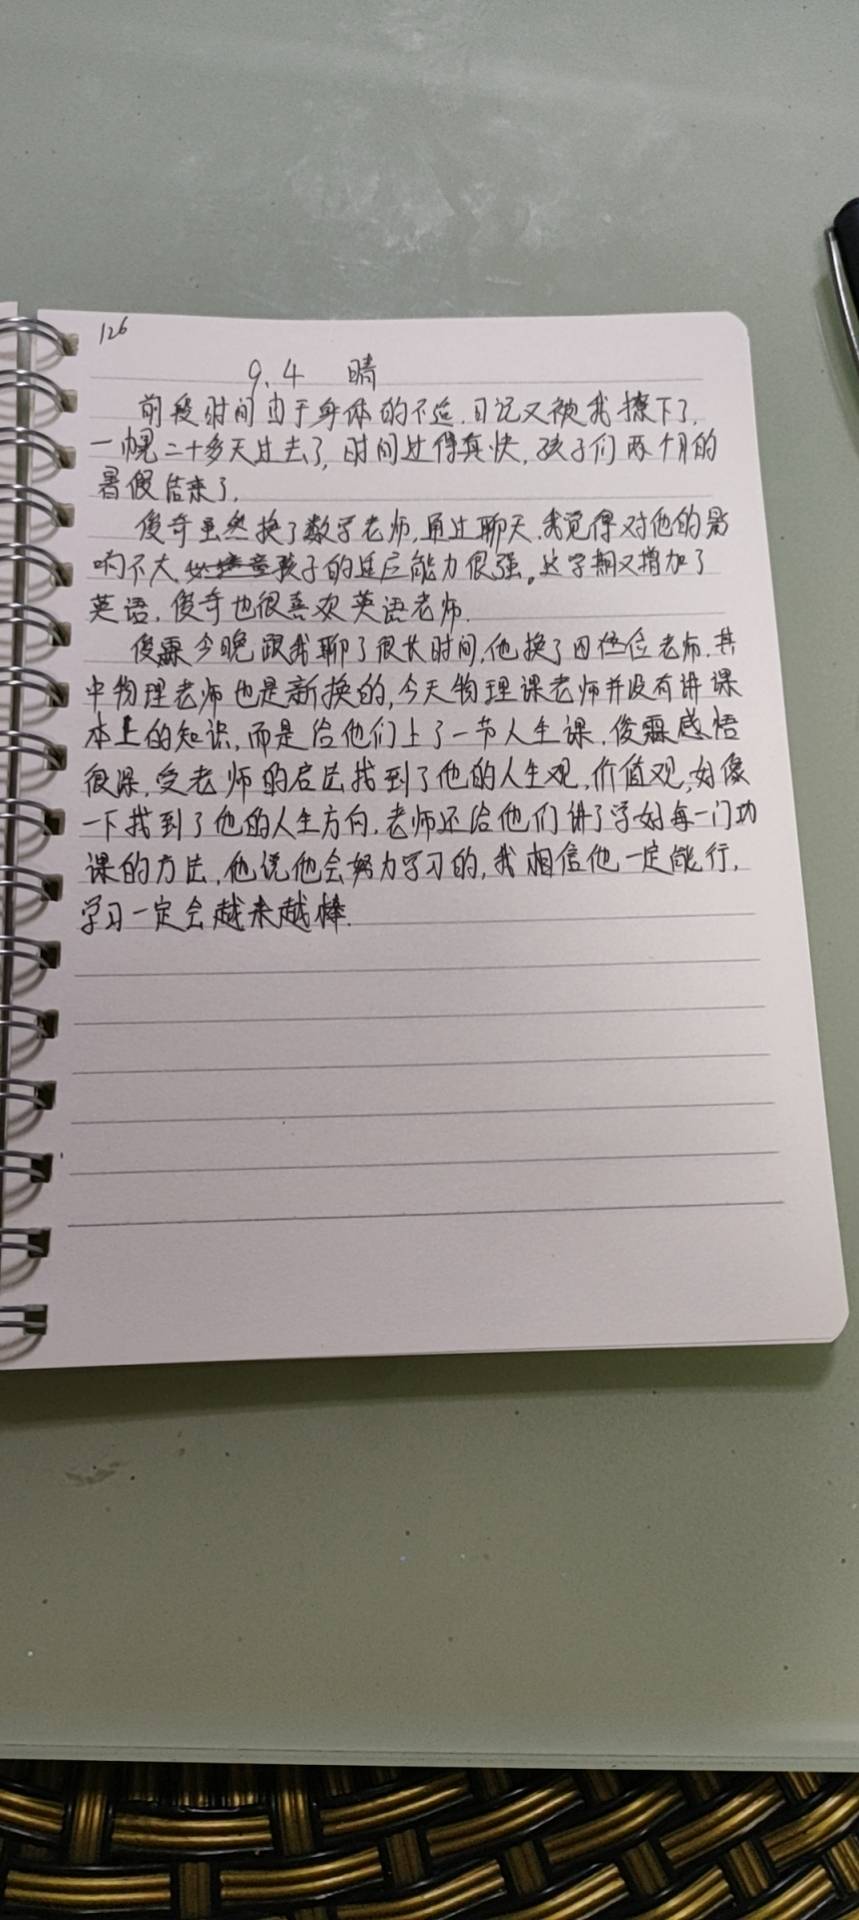 126
9.4 晴
前段时间由于身体的不适,日记又被我撩下了,
一幌二十多天过去了,时间过得真快,孩子们两个月的
暑假结束了,
俊奇虽然换了数学老师,通过聊天,我觉得对他的影
响不大,孩子的适应能力很强。这学期又增加了
英语,俊奇也很喜欢英语老师.
俊霖今晚跟我聊了很长时间,他换了四位老师,其
中物理老师也是新换的,今天物理课老师并没有讲课
本上的知识,而是给他们上了一节人生课,俊霖感悟
很深,受老师的启法找到了他的人生观,价值观,好像
一下找到了他的人生方向,老师还给他们讲了学好每一门功
课的方法,他说他会努力学习的,我相信他一定能行,
学习一定会越来越棒.